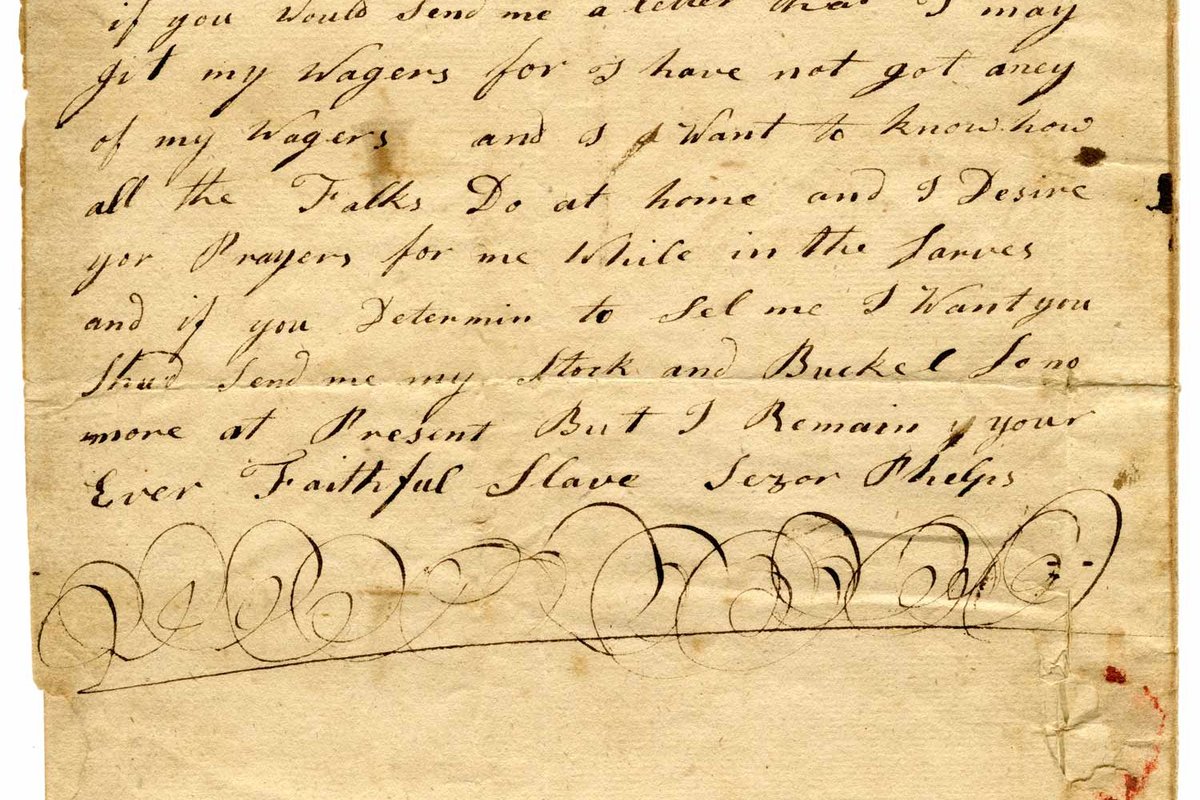 if you Would Send me a letter that I may
git my Wagers for I have not got aney
of my Wagers and I Want to know how
all the Falks Do at home and I Desire
yor Prayers for me While in the Sarves
and if you Determin to Sel me I Want you
Shud Send me my Stock and Buckel So no
more at Present But I Remain your
Ever Faithful Slave Sezor Phelps